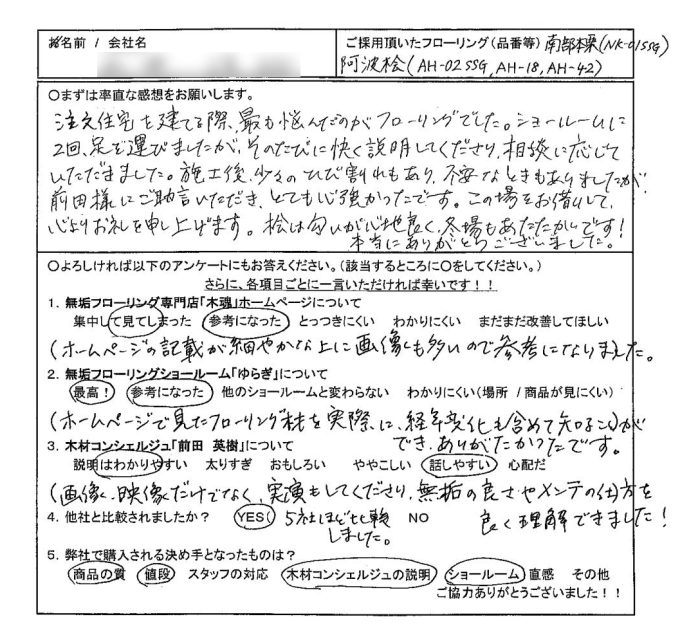 お名前 / 会社名
ご採用頂いたフローリング(品番等) 南部栗(NK-01SSG)
阿波桧(AH-02SSG, AH-18, AH-42)
○まずは率直な感想をお願いします。
注文住宅を建てる際、最も悩んだのがフローリングでした。ショールームに
2回、足を運びましたが、そのたびに快く説明してくださり、相談に応じて
いただきました。施工後、少々のひび割れもあり、不安なときもありましたが
前田様にご助言いただき、とても心強かったです。この場をお借りして、
心よりお礼を申し上げます。桧は匂いが心地良く、冬場もあたたかいです!
本当にありがとうございました。
○よろしければ以下のアンケートにもお答えください。(該当するところに○をしてください。)
さらに、各項目ごとに一言いただければ幸いです!!
1. 無垢フローリング専門店「木魂」ホームページについて
集中して見てしまった 参考になった とっつきにくい わかりにくい まだまだ改善してほしい
(ホームページの記載が細やかな上に画像も多いので参考になりました。
2. 無垢フローリングショールーム「ゆらぎ」について
最高! 参考になった 他のショールームと変わらない わかりにくい(場所 / 商品が見にくい)
(ホームページで見たフローリング材を実際に、経年変化も含めて知ることが
でき、ありがたかったです。
3. 木材コンシェルジュ「前田 英樹」について
説明はわかりやすい 太りすぎ おもしろい ややこしい 話しやすい 心配だ
(画像、映像だけでなく、実演もしてくださり、無垢の良さやメンテの仕方を
良く理解できました!
4. 他社と比較されましたか? YES( 5社ほど比較しました。 NO
5. 弊社で購入される決め手となったものは?
商品の質 値段 スタッフの対応 木材コンシェルジュの説明 ショールーム 直感 その他
ご協力ありがとうございました!!